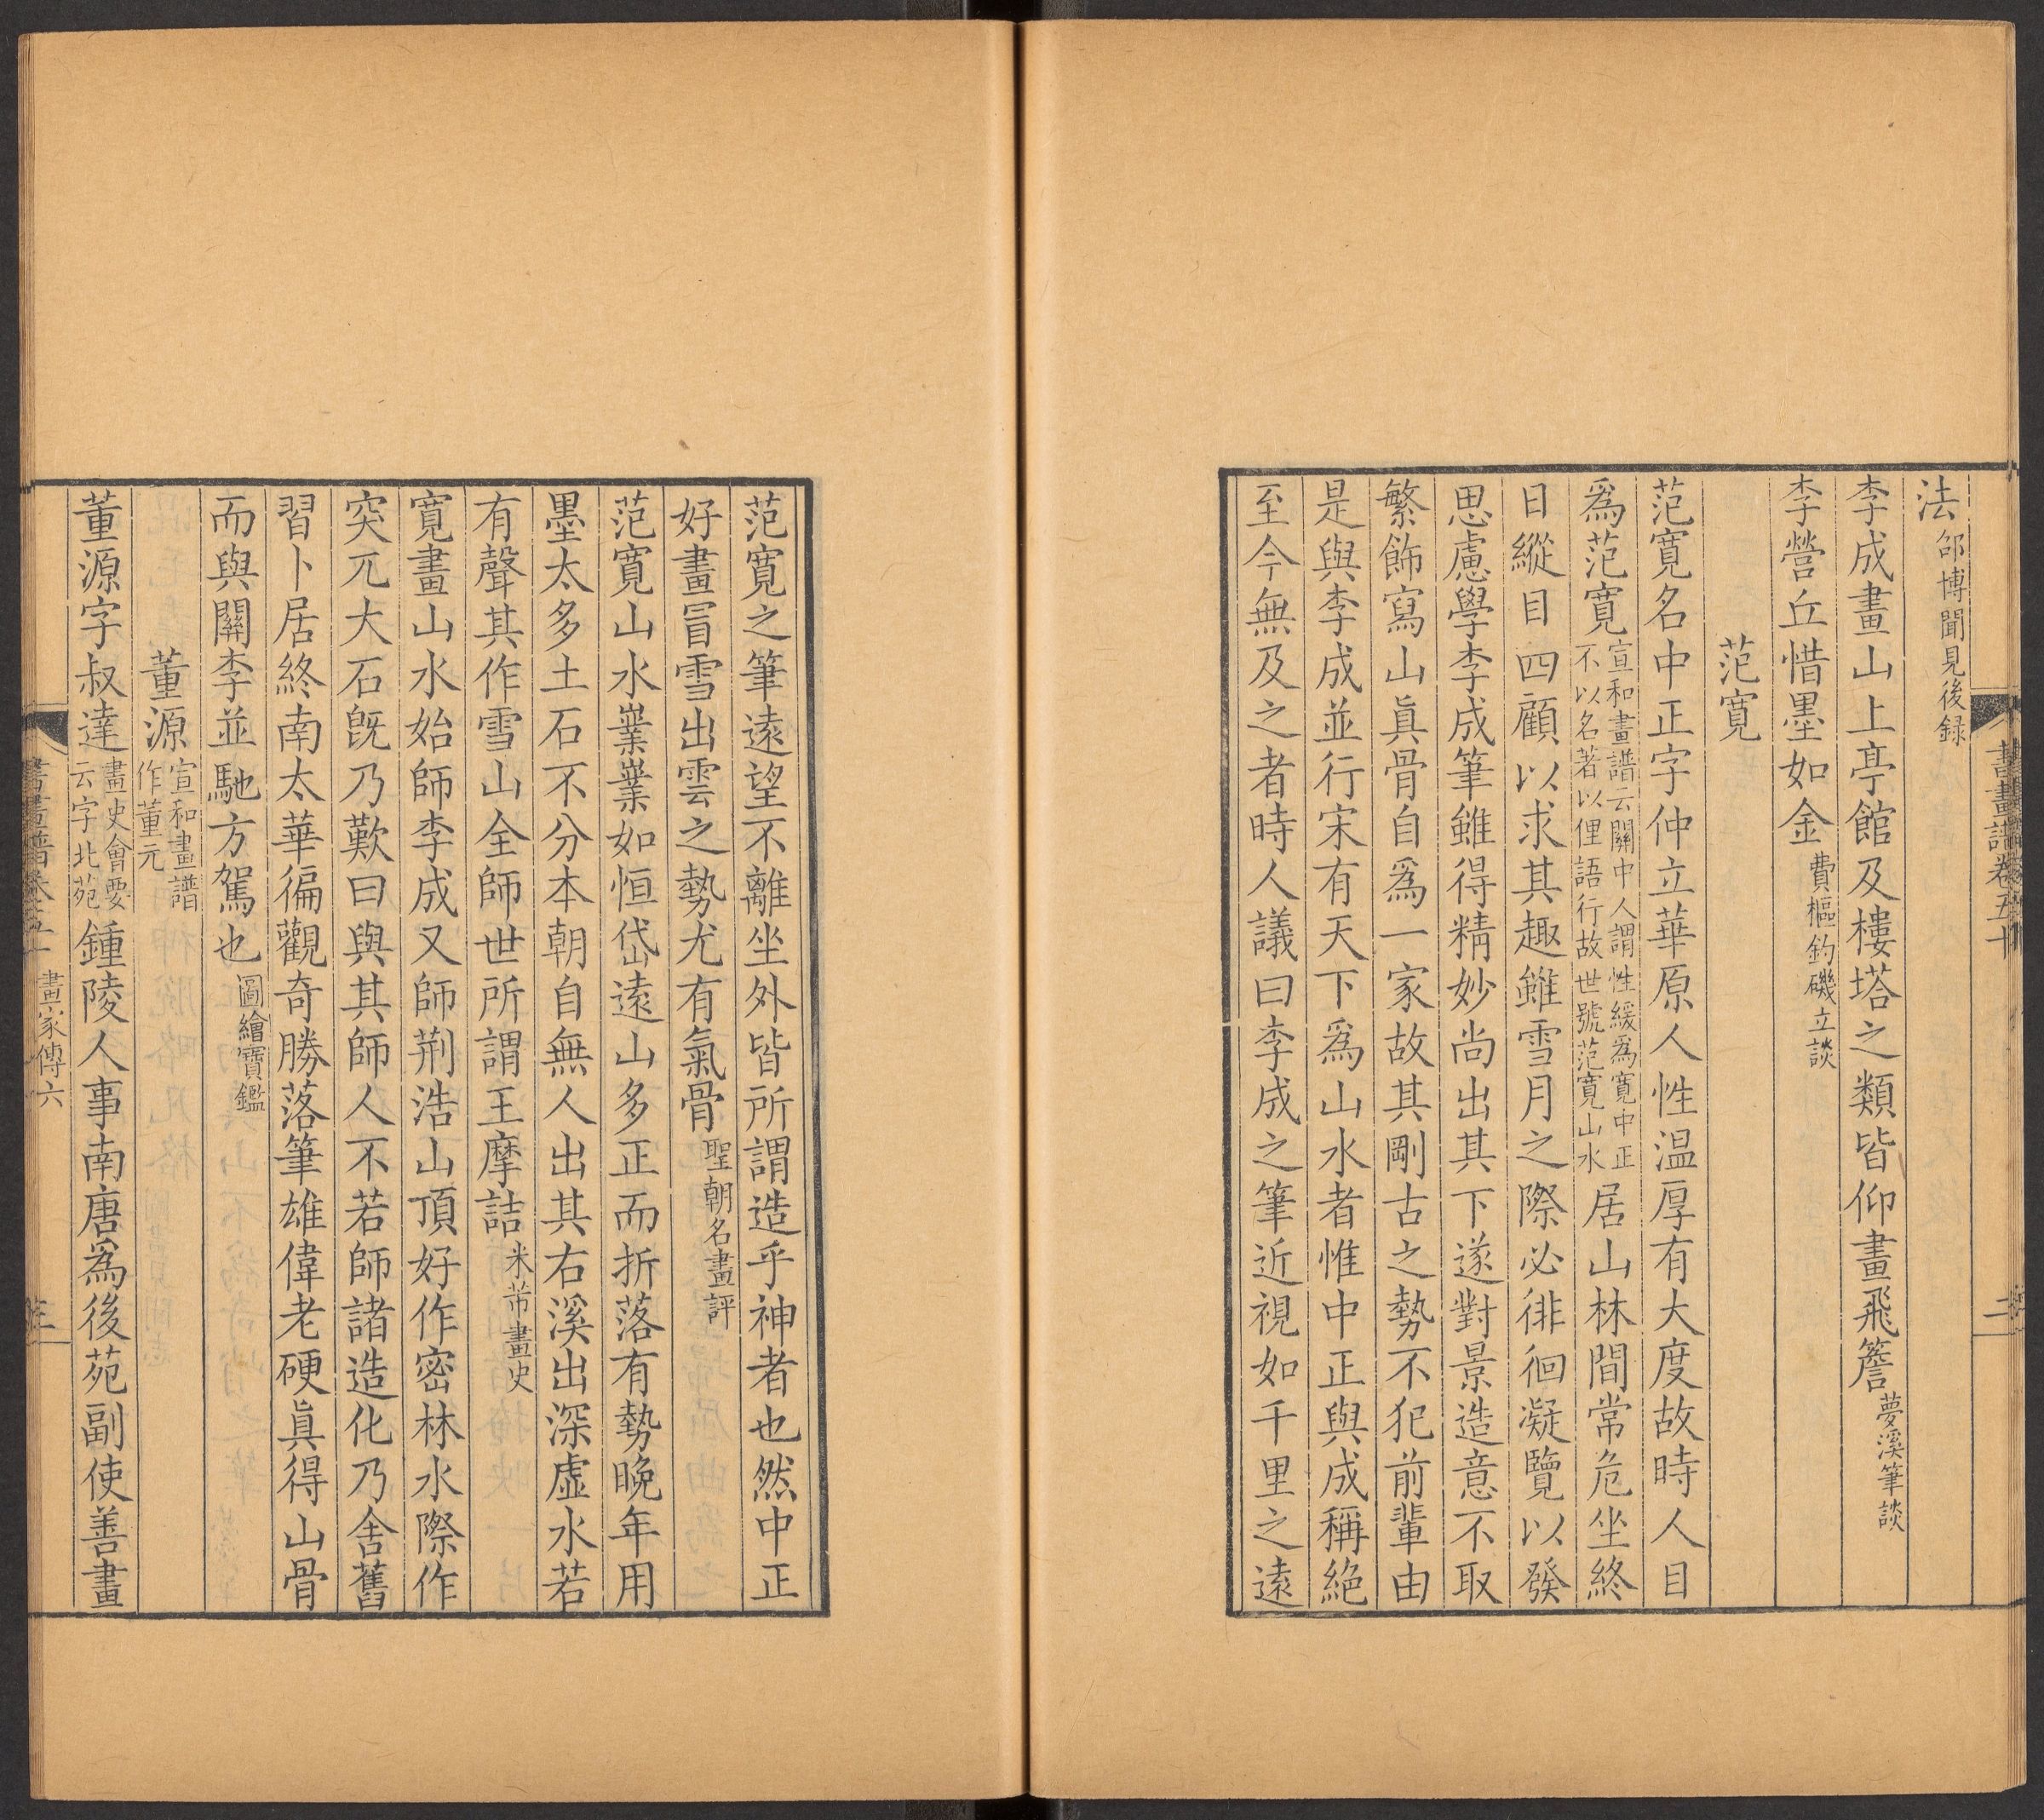 書畫譜卷五十
二
法邵博聞見後録
李成畫山上亭館及樓塔之類皆仰畫飛簷夢溪筆談
李營丘惜墨如金費樞釣磯立談
范寬
范寬名中正字仲立華原人性温厚有大度故時人目
爲范寬宣和畫譜云關中人謂性緩爲寬中正不以名著以俚語行故世號范寬山水居山林間常危坐終
日縱目四顧以求其趣雖雪月之際必徘徊凝覽以發
思慮學李成筆雖得精妙尚出其下遂對景造意不取
繁飾寫山眞骨自爲一家故其剛古之勢不犯前輩由
是與李成並行宋有天下爲山水者惟中正與成稱絶
至今無及之者時人議曰李成之筆近視如千里之遠
范寬之筆遠望不離坐外皆所謂造乎神者也然中正
好畫冒雪出雲之勢尤有氣骨聖朝名畫評
范寬山水嶪嶪如恒岱遠山多正而折落有勢晚年用
墨太多土石不分本朝自無人出其右溪出深虚水若
有聲其作雪山全師世所謂王摩詰米芾畫史
寬畫山水始師李成又師荆浩山頂好作密林水際作
突兀大石旣乃歎曰與其師人不若師諸造化乃舍舊
習卜居終南太華徧觀奇勝落筆雄偉老硬眞得山骨
而與關李並馳方駕也圖繪寶鑑
董源宣和畫譜作董元
董源字叔達畫史會要云字北苑鍾陵人事南唐爲後苑副使善畫
書畫譜卷五十
畫家傳六
三